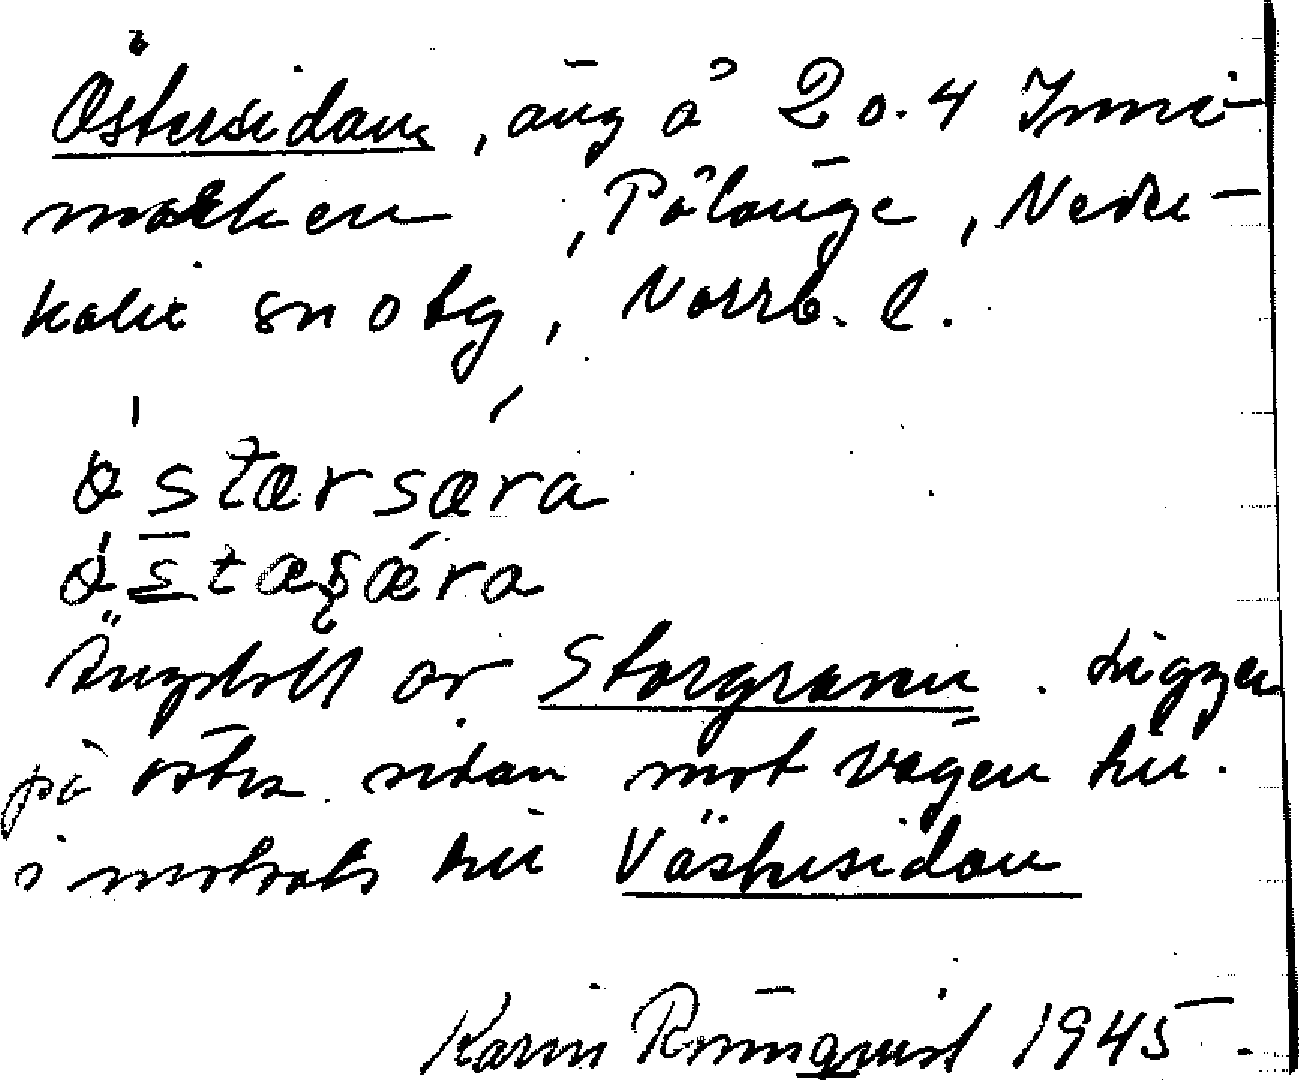 Östersidan, äng å 2 o. 4 Inni-
marken, Pålänge, Neder-
kalix sn o tg, Norrb. l.
ó̀stærsæra
ó̀stæʂǽra
Ängskott av Storgranen. Ligger
på östra sidan mot vägen till.
i motsats till Västersidan
Karin Rönnqvist 1945.